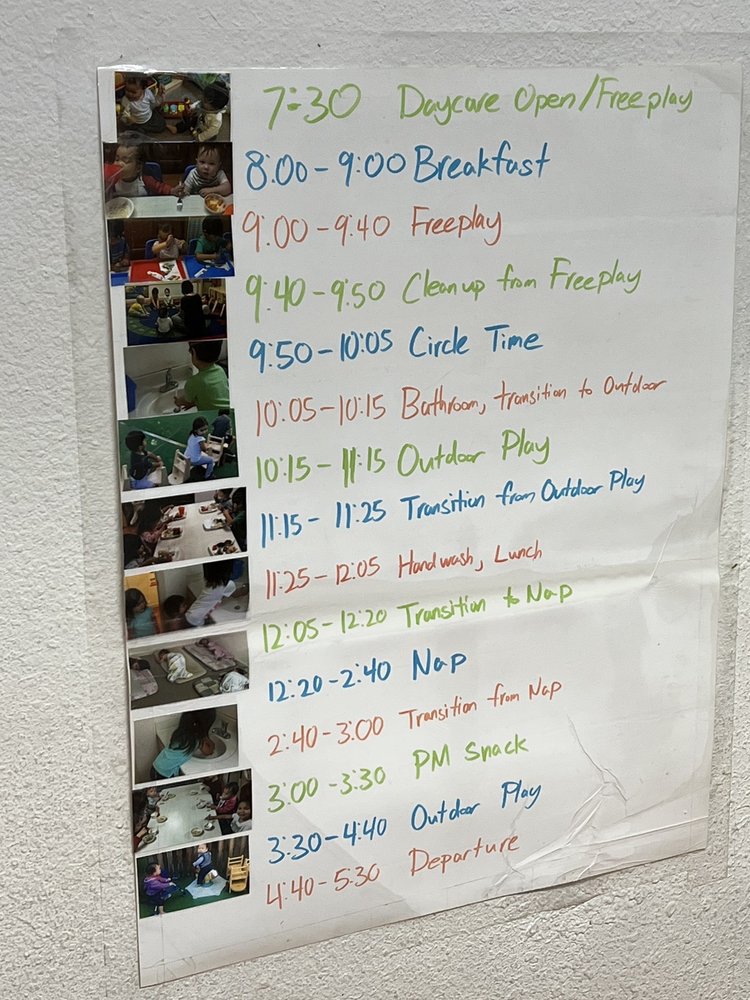 7:30 Daycare Open/Freeplay
8:00-9:00 Breakfast
9:00-9:40 Freeplay
9:40-9:50 Clean up from Freeplay
9:50-10:05 Circle Time
10:05-10:15 Bathroom, transition to Outdoor
10:15-11:15 Outdoor Play
11:15-11:25 Transition from Outdoor Play
11:25-12:05 Handwash, Lunch
12:05-12:20 Transition to Nap
12:20-2:40 Nap
2:40-3:00 Transition from Nap
3:00-3:30 PM Snack
3:30-4:40 Outdoor Play
4:40-5:30 Departure